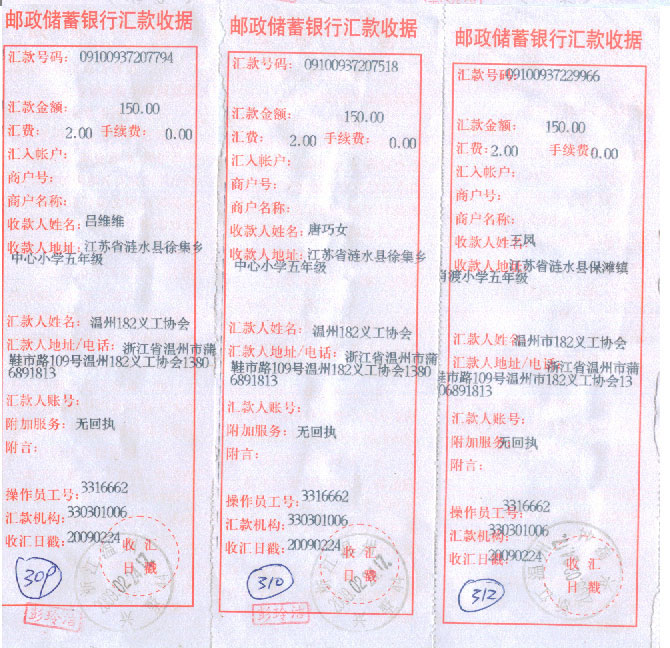 邮政储蓄银行汇款收据
汇款号码: 09100937207794
汇款金额: 150.00
汇费: 2.00 手续费: 0.00
汇入帐户:
商户号:
商户名称:
收款人姓名: 吕维维
收款人地址: 江苏省涟水县徐集乡
中心小学五年级
汇款人姓名: 温州182义工协会
汇款人地址/电话: 浙江省温州市蒲
鞋市路109号温州182义工协会1380
6891813
汇款人账号:
附加服务: 无回执
附言:
操作员工号: 3316662
汇款机构: 330301006
收汇日戳: 20090224
收汇
日戳
309
邮政储蓄银行汇款收据
汇款号码: 09100937207518
汇款金额: 150.00
汇费: 2.00 手续费: 0.00
汇入帐户:
商户号:
商户名称:
收款人姓名: 唐巧女
收款人地址: 江苏省涟水县徐集乡
中心小学五年级
汇款人姓名: 温州182义工协会
汇款人地址/电话: 浙江省温州市蒲
鞋市路109号温州182义工协会1380
6891813
汇款人账号:
附加服务: 无回执
附言:
操作员工号: 3316662
汇款机构: 330301006
收汇日戳: 20090224
收汇
日戳
310
邮政储蓄银行汇款收据
汇款号码: 09100937229966
汇款金额: 150.00
汇费: 2.00 手续费: 0.00
汇入帐户:
商户号:
商户名称:
收款人姓名: 王凤
收款人地址: 江苏省涟水县保滩镇
渡小学五年级
汇款人姓名: 温州市182义工协会
汇款人地址/电话: 浙江省温州市蒲
鞋市路109号温州市182义工协会13
806891813
汇款人账号:
附加服务: 无回执
附言:
操作员工号: 3316662
汇款机构: 330301006
收汇日戳: 20090224
收汇
日戳
312